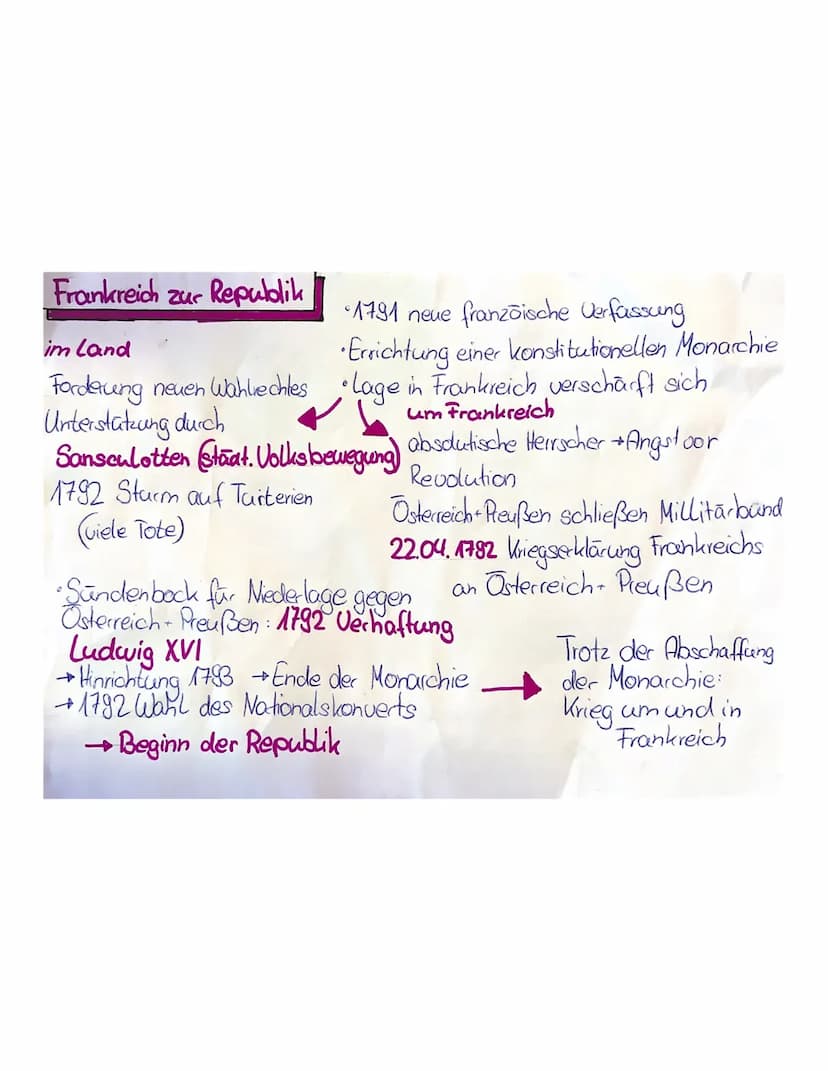 Frankreich zur Republik
• 1791 neue französiche Verfassung
• Errichtung einer konstitutionellen Monarchie
• Lage in Frankreich verschärft sich
im Land
Forderung neuen Wahlrechtes
Unterstützung durch
Sansculotten (städt. Volksbewegung)
1792 Sturm auf Tuiterien
(viele Tote)
um Frankreich
absolutische Herrscher → Angst vor
Revolution
Österreich + Preußen schließen Millitärbund
22.04.1792 Kriegserklärung Frankreichs
an Österreich + Preußen
• Sündenbock für Niederlage gegen
Österreich + Preußen : 1792 Verhaftung
Ludwig XVI
→ Hinrichtung 1793 → Ende der Monarchie
→ 1792 Wahl des Nationalskonverts
→ Beginn der Republik
Trotz der Abschaffung
der Monarchie:
Krieg um und in
Frankreich